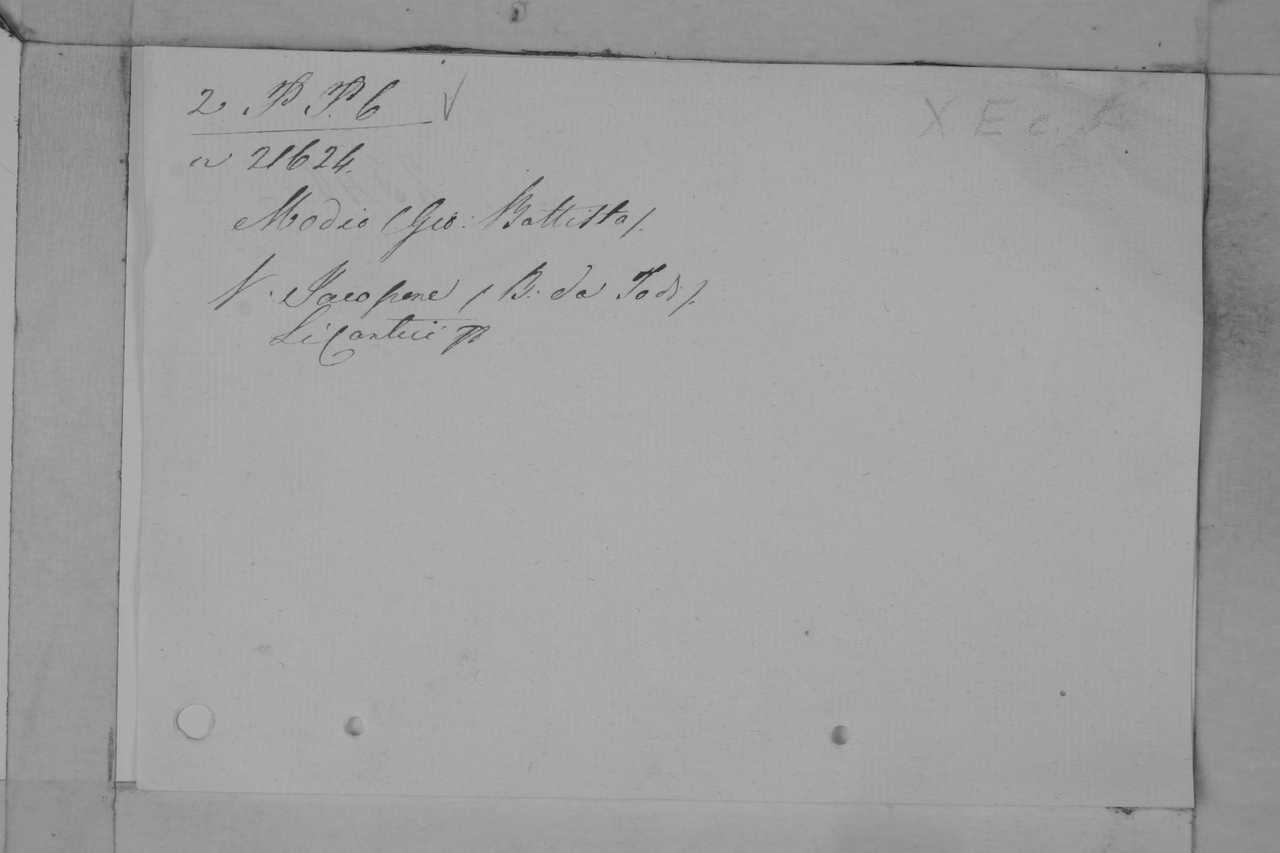 2 P P. 6 √ X E c.
n 21624.
Modio (Gio: Battista).
V. Jacopone (B. da Todi).
Li Cantici